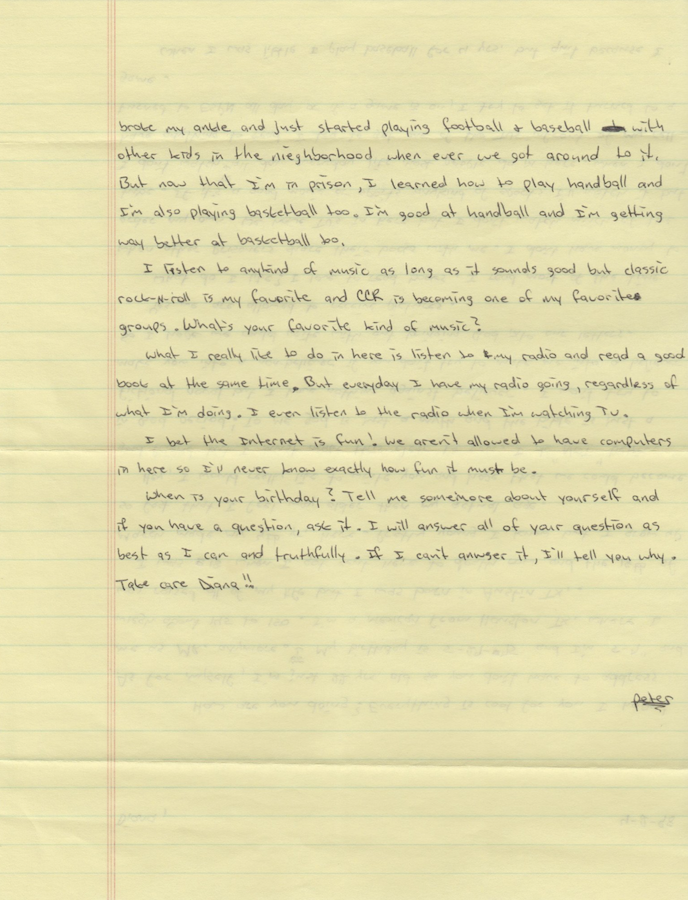 broke my ankle and just started playing football & baseball with
other kids in the nieghborhood when ever we got around to it.
But now that I'm in prison, I learned how to play handball and
I'm also playing basketball too. I'm good at handball and I'm getting
way better at basketball too.
I listen to anykind of music as long as it sounds good but classic
rock-N-roll is my favorite and CCR is becoming one of my favorites
groups. What's your favorite kind of music?
What I really like to do in here is listen to my radio and read a good
book at the same time. But everyday I have my radio going, regardless of
what I'm doing. I even listen to the radio when I'm watching TV.
I bet the Internet is fun! We aren't allowed to have computers
in here so I'll never know exactly how fun it must be.
When is your birthday? Tell me somemore about yourself and
if you have a question, ask it. I will answer all of your question as
best as I can and truthfully. If I can't anwser it, I'll tell you why.
Take care Diana!!
Peter